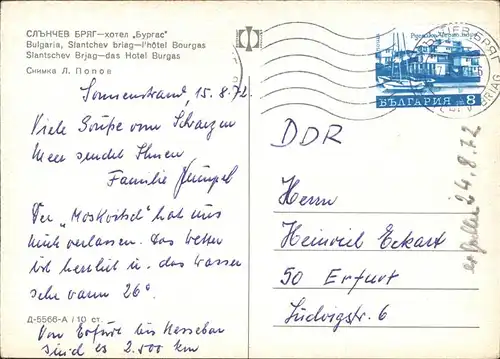 СЛЪНЧЕВ БРЯГ—хотел „Бургас"
Bulgaria, Slantchev briag—l'hôtel Bourgas
Slantschev Brjag—das Hotel Burgas
Снимка Л. Попов
Sonnenstrand, 15.8.72.
Viele Grüße vom Schwarzen
Meer sendet Ihnen
Familie
Der „Moskwitsch" hat uns
nicht verlassen. Das Wetter
ist herrlich u. das Wasser
sehr warm 26°.
Д-5566-А / 10 ст.
Von Erfurt bis Nessebar
sind es 2.500 km
БЪЛГАРИЯ 8
DDR
Herrn
Heinrich Eckart
50 Erfurt
Ludwigstr. 6
erhalten 24.8.72